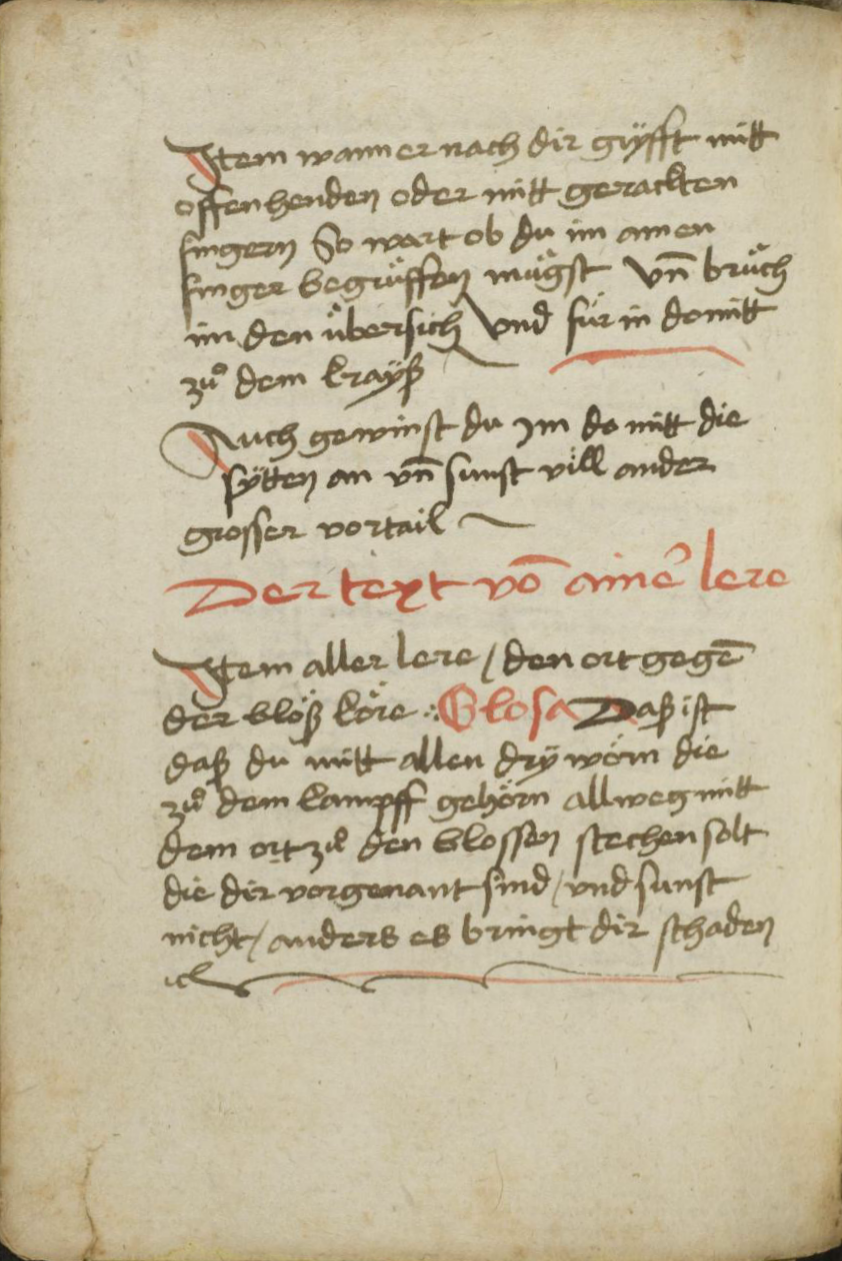 Item wann er nach dir gryfft mitt
offen henden oder mitt gerackten
fingern So wart ob du im ainen
finger begrüffen mügst Vn̄ brüch
im den übersich Vnd für in domitt
zuͦ dem krayß
Auch gewinst du Im do mitt die
sytten an vn̄ sunst vill ander
grosser vortail
Der text vō aineˀ lere
Item aller lere / den ort gegē
der blöß köre Glosa Daß ist
daß du mitt allen dry wörn die
zuͦ dem kampff gehörn allweg mitt
dem ort zuͦ den blossen stechen solt
die dir vorgenant sind / vnd sunst
nicht / anders es bringt dir schaden